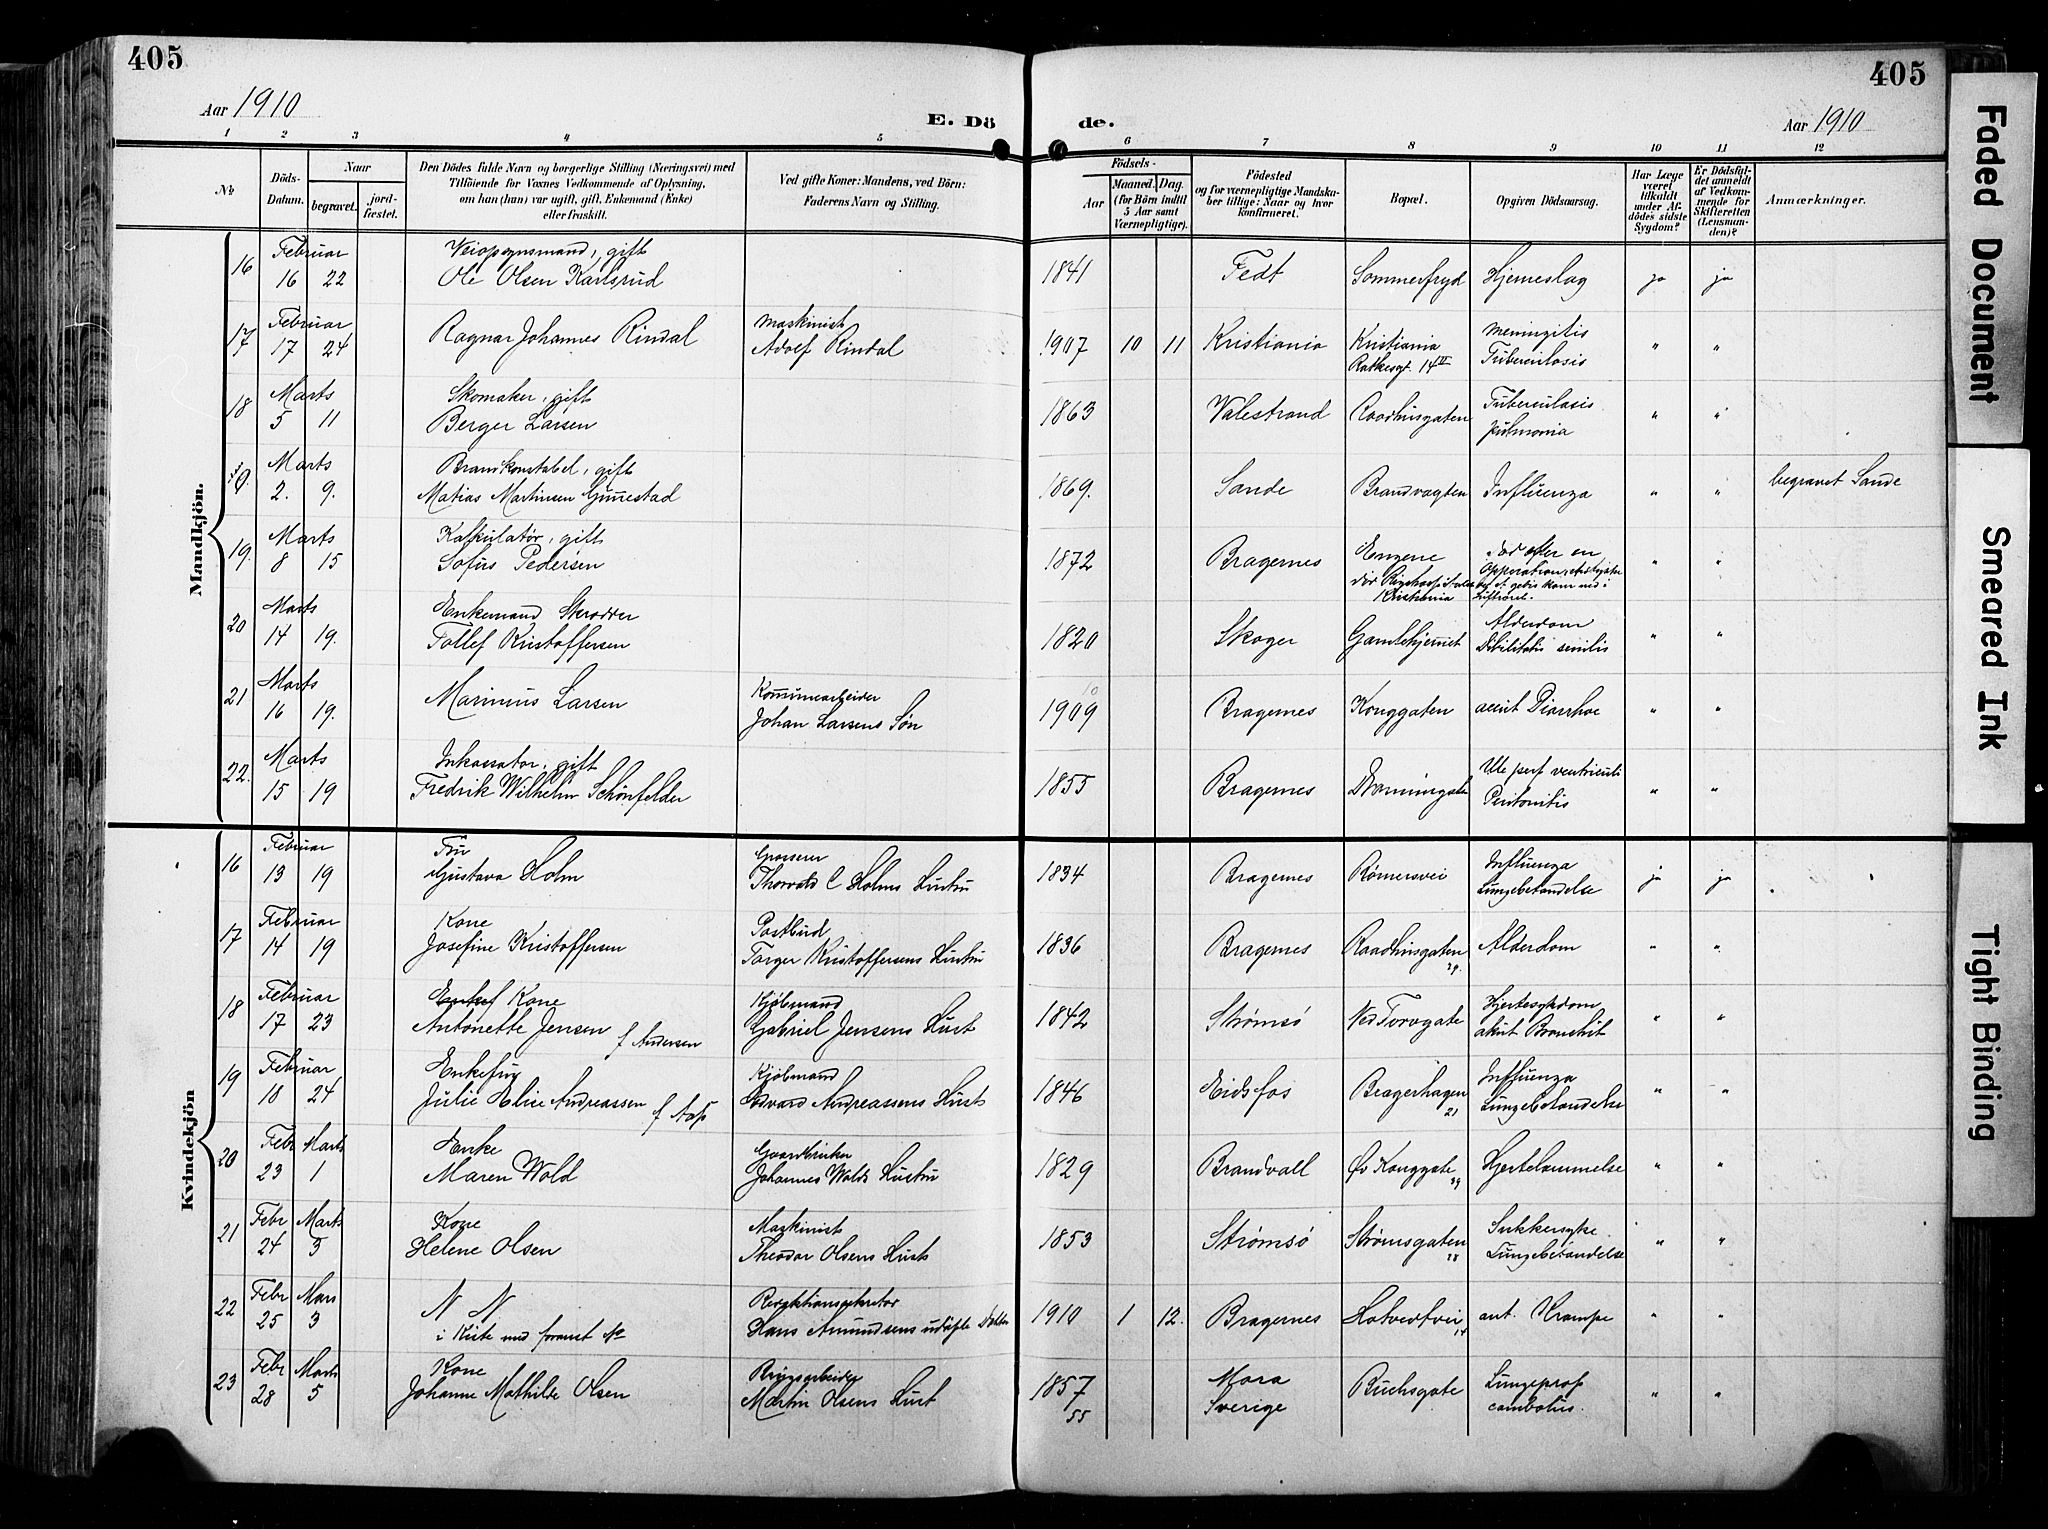 405
405
Aar 1910
E. Dö de.
Aar 1910
1 2 3 4 5 6 7 8 9 10 11 12
№
Döds-Datum.
Naar
begravet.
jord-fæstet.
Den Dödes fulde Navn og borgerlige Stilling (Næringsvei) med
Tilföiende for Voxnes Vedkommende af Oplysning,
om han (hun) var ugift, gift, Enkemand (Enke)
eller fraskilt.
Ved gifte Koner: Mandens, ved Börn:
Faderens Navn og Stilling.
Födsels-
Aar
Maaned. Dag.
(for Börn indtil
5 Aar samt
Værnepligtige).
Födested
og for værnepligtige Mandska-
ber tillige: Naar og hvor
konfirmeret.
Bopæl.
Opgiven Dödsaarsag.
Har Læge
været
tilkaldt
under Af-
dödes sidste
Sygdom?
Er Dödsfal-
det anmeldt
af Vedkom-
mende for
Skifteretten
(Lensman-
den)?
Anmærkninger.
Mandkjön.
16 Februar gift
16 22 Ole Olsen Karlsrud 1841 Fedt Sommerfryd Hjerneslag ja ja
17 Februar Maskinist Meningitis
17 24 Ragnar Johannes Rindal Adolf Rindal 1907 10 11 Kristiania Kristiania Tuberculosis " "
Ratkesgt. 14 III
18 Marts Skomaker, gift Tuberculosis
5 11 Berger Larsen 1863 Valestrand Raadhusgaten pulmonia " "
Marts Brandkonstabel, gift
2. 9. Matias Martinsen Gunnestad 1869. Sande Brandvagten Influenza " " begravet Sande
19. Marts Kalkulatør, gift Død efter en
8 15 Sofus Pedersen 1872 Bragernes Engene " "
Kristiania Luftrøret.
20 Marts Enkemand, Skrædder Alderdom
14 19. Tollef Kristoffersen 1820 Skoger Gamlehjemmet Debilitatis senilis " "
21 Marts Kommunearbeider 10
16 19. Marinius Larsen Johan Larsens Søn 1909 Bragernes Konggaten acut Diarrhoe " "
22. Marts Inkassator, gift Ulc perf ventriculi
15 19 Fredrik Wilhelm Schönfelder 1855 Bragernes Peritonitis " "
Kvindekjön
16 Februar Fru Grosserer Influenza
13 19 Gustava Holm Thorvald C Holms Hustru 1834 Bragernes Rømersvei Lungebetændelse ja ja
17 Februar Kone Postbud
14 19 Josefine Kristoffersen Torger Kristoffersens Hustru 1836 Bragernes Raadhusgaten 29. Alderdom " "
18 Februar Kone Kjøbmand Hjertesykdom
17 23 Antonette Jensen f Andersen Gabriel Jensens Hust 1842 Strømsø Ned Torvgate akut Bronchit " "
19 Februar Enkefru Kjøbmand Influenza
18 24 Julie Elise Andreassen f Aas Edvard Andreassens Hust 1846 Eidsfos Bragerhagen 21 Lungebetændelse " "
20 Febr Marts Enke Gaardbruker
23 1 Maren Wold Johannes Wolds Hustru 1829 Brandvall Øv Konggate 39 Hjertelammelse " "
21 Febr Marts Kone Maskinist Sukkersyke
24 3 Helene Olsen Theodor Olsens Hust 1853 Strømsø Strømsgaten 28 Lungebetændelse " "
22 Febr Mars N N Redaktionssekretær
25 3 i Kiste med Hans Amundsens udøpte Datter 1910 1 12. Bragernes Hotvedtvei 14 Krampe " "
23 Febr Marts Kone Mora
28 5 Johanne Mathilde Olsen Martin Olsens Hust 1857 Sverige Buchsgate " "
55
Faded Document
Smeared Ink
Tight Binding